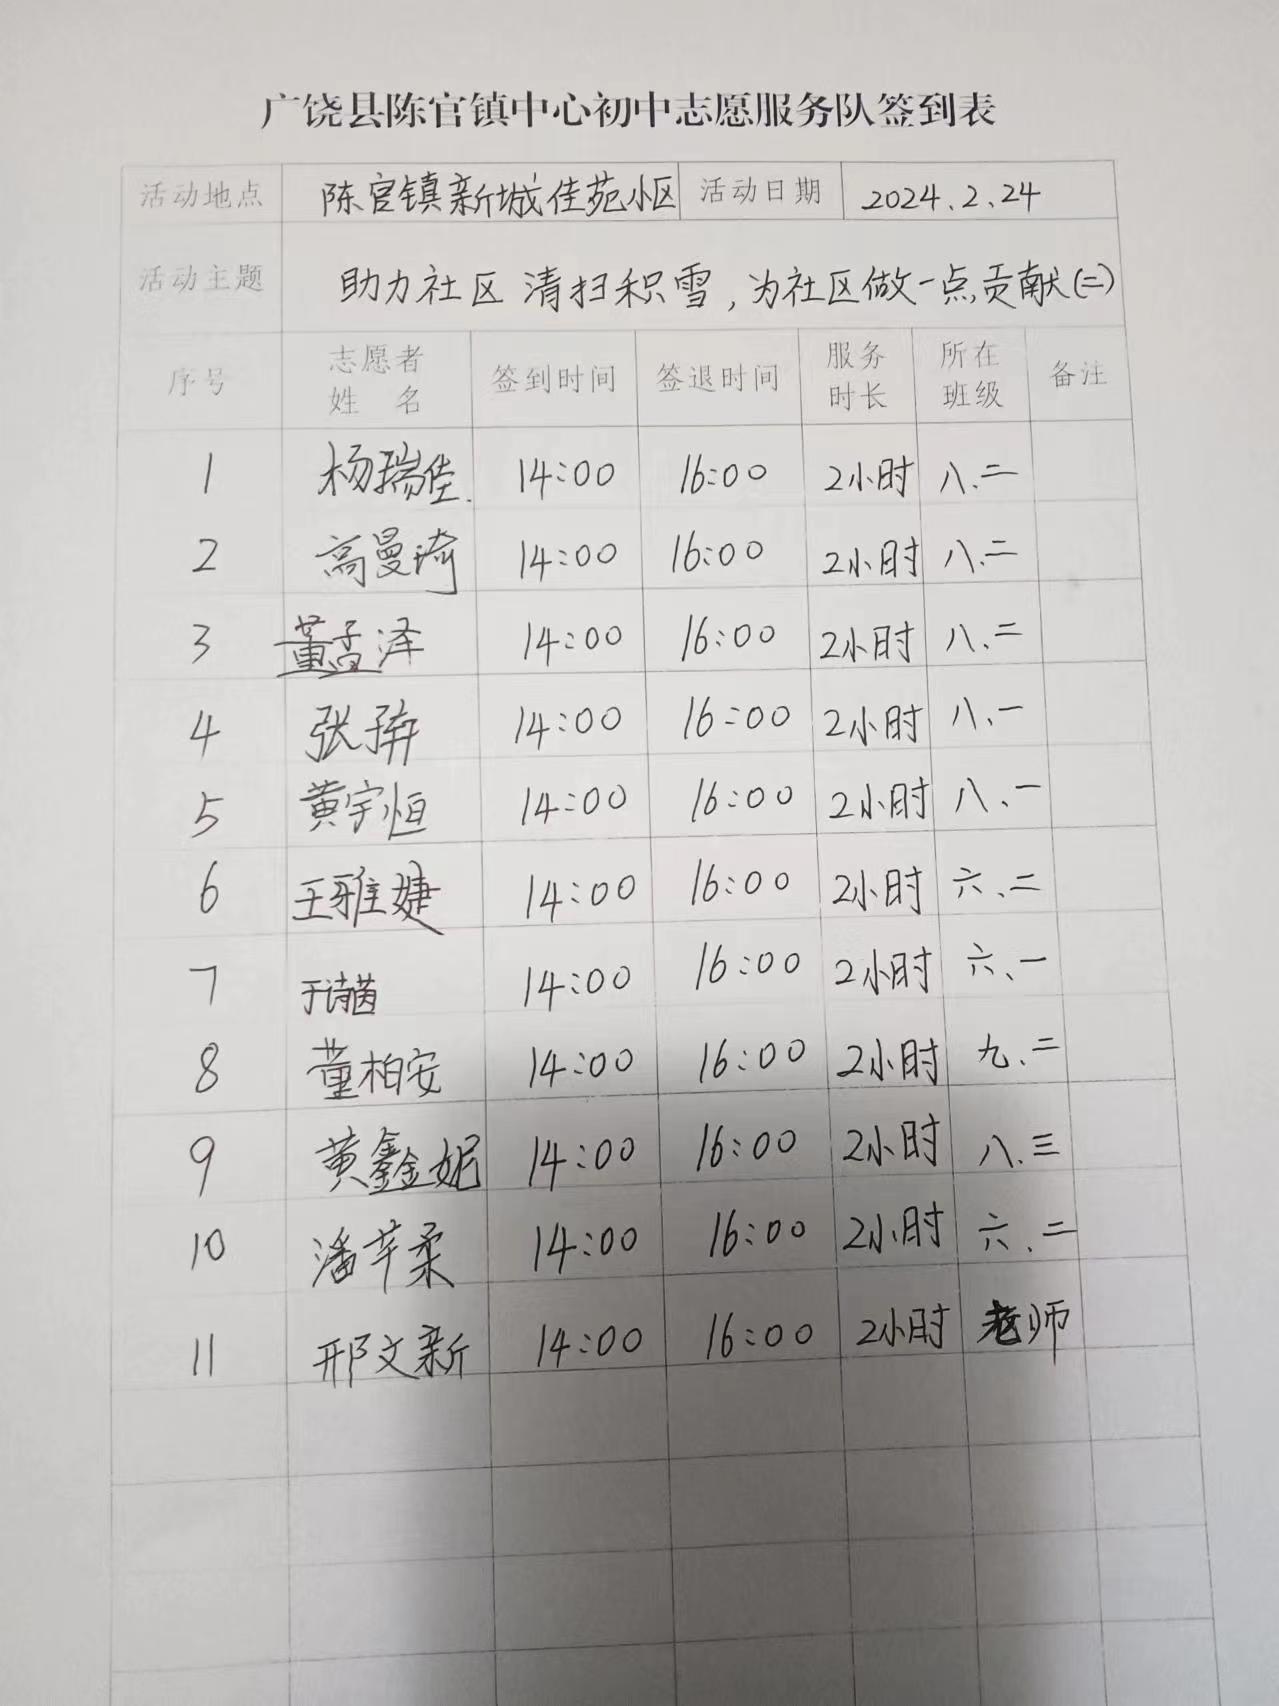 广饶县陈官镇中心初中志愿服务队签到表
活动地点 陈官镇新城佳苑小区 活动日期 2024.2.24
活动主题 助力社区 清扫积雪，为社区做一点贡献(二)
序号 志愿者姓 名 签到时间 签退时间 服务时长 所在班级 备注
1 杨瑞佳. 14:00 16:00 2小时 八.二
2 高曼琦 14:00 16:00 2小时 八.二
3 董孟泽 14:00 16:00 2小时 八.二
4 张 14:00 16:00 2小时 八.一
5 黄宇恒 14:00 16:00 2小时 八、一
6 王雅婕 14:00 16:00 2小时 六.二
7 于诗茵 14:00 16:00 2小时 六、一
8 董柏安 14:00 16:00 2小时 九.二
9 黄鑫妮 14:00 16:00 2小时 八.三
10 潘芊柔 14:00 16:00 2小时 六.二
11 邢文新 14:00 16:00 2小时 老师